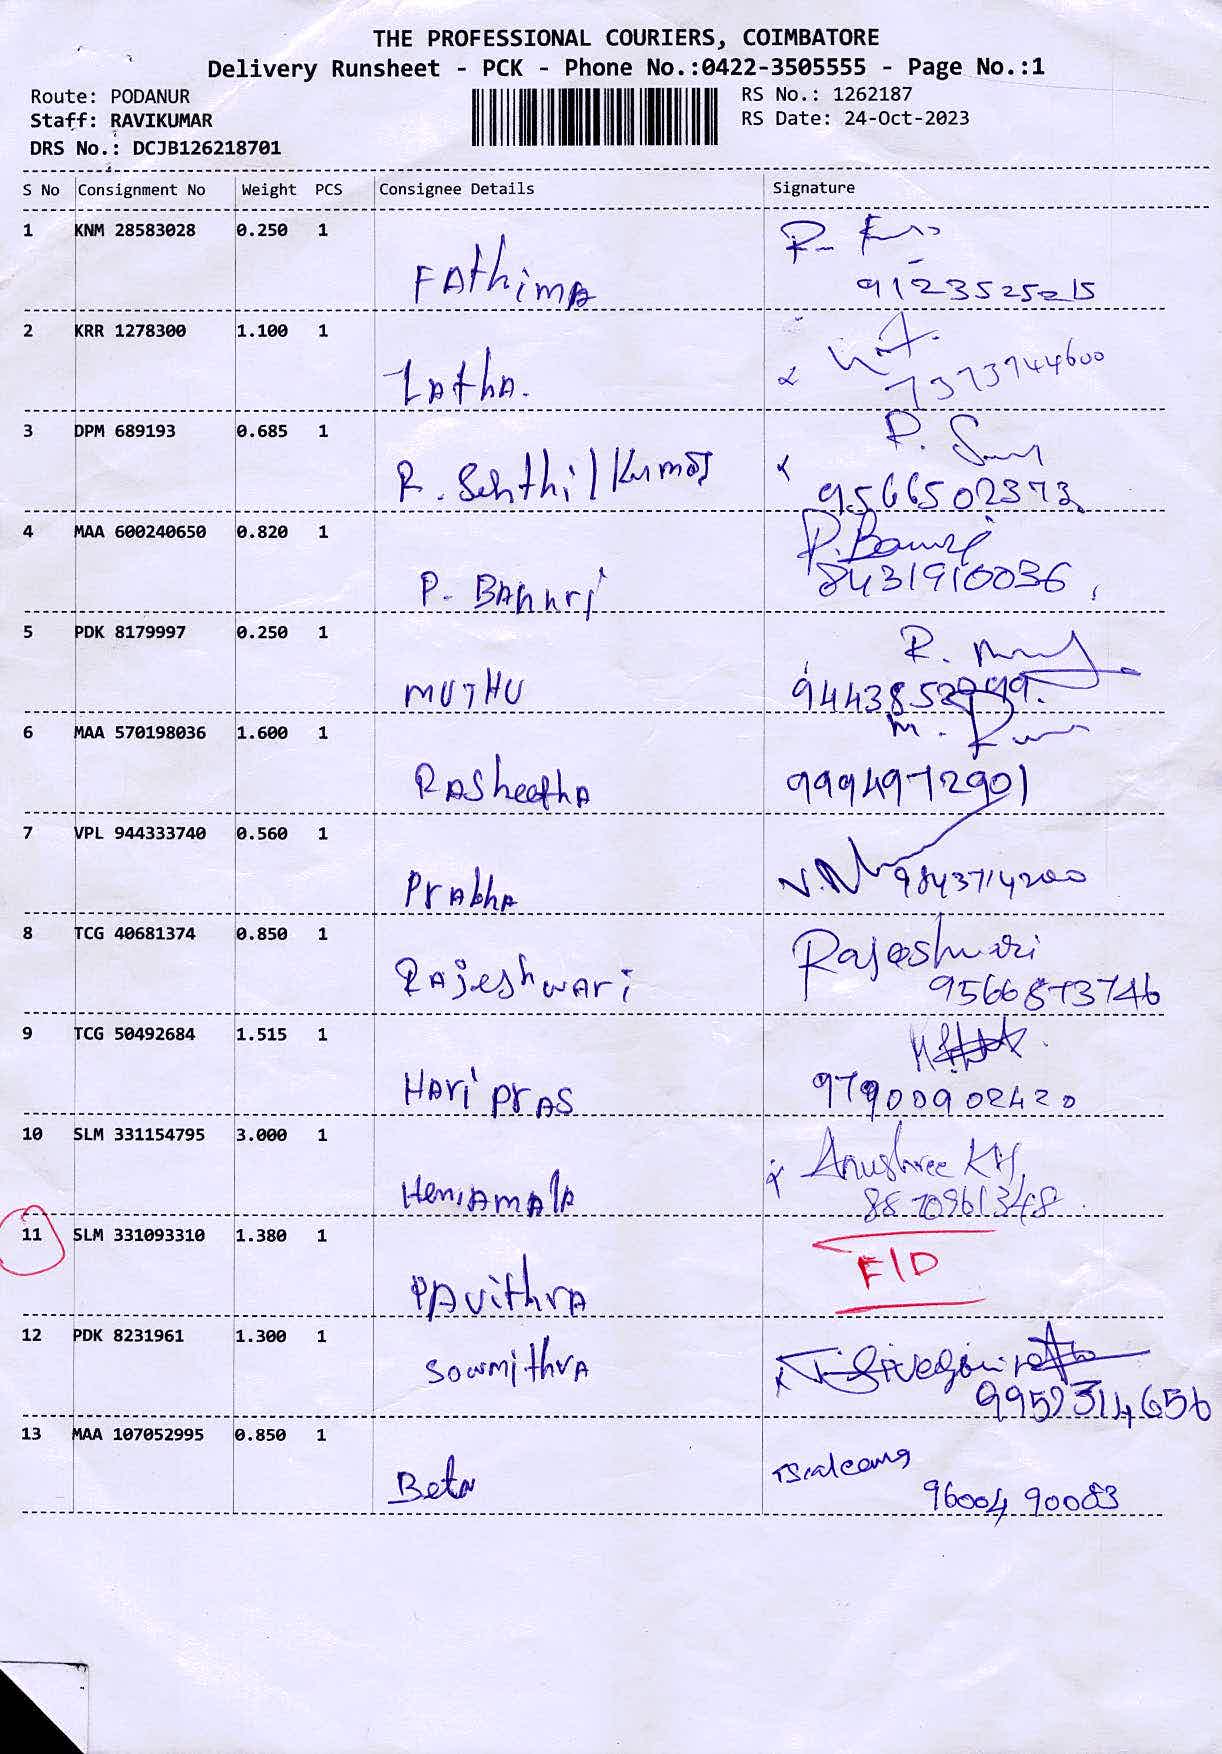 THE PROFESSIONAL COURIERS, COIMBATORE
Delivery Runsheet - PCK - Phone No.:0422-3505555 - Page No.:1
Route: PODANUR RS No.: 1262187
Staff: RAVIKUMAR RS Date: 24-Oct-2023
DRS No.: DCJB126218701
S No Consignment No Weight PCS Consignee Details Signature
1 KNM 28583028 0.250 1
FAthimA
2 KRR 1278300 1.100 1
LAthA.
7373744600
3 DPM 689193 0.685 1
R. Senthil Kumar
9566502373
4 MAA 600240650 0.820 1
P. BAnnri
8431910036
5 PDK 8179997 0.250 1
MUTHU
6 MAA 570198036 1.600 1
RASheethA
9994972901
7 VPL 944333740 0.560 1
PrAbhA 9843714200
8 TCG 40681374 0.850 1
RAjeshwAri Rajeshwari
9566873746
9 TCG 50492684 1.515 1
HAri prAS
10 SLM 331154795 3.000 1
Anushree
8870961348
11 SLM 331093310 1.380 1
PAvithrA F/D
12 PDK 8231961 1.300 1
SowmithrA
9952314656
13 MAA 107052995 0.850 1
Beta
9600490083